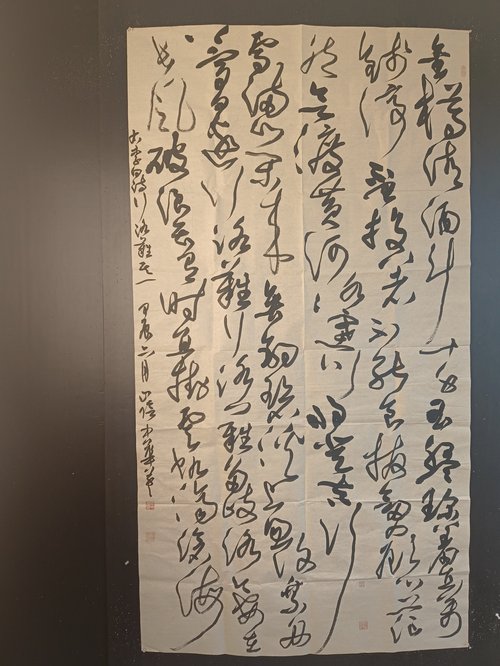 金樽清酒斗十千玉盘珍羞直万
钱停杯投箸不能食拔劍四顾心茫
然欲渡黄河冰塞川将登太行
雪满山闲来垂钓碧溪上忽复乘舟
梦日边行路難行路難多歧路今安在
长风破浪会有时直挂云帆济沧海
李白诗行路難其一 甲辰六月